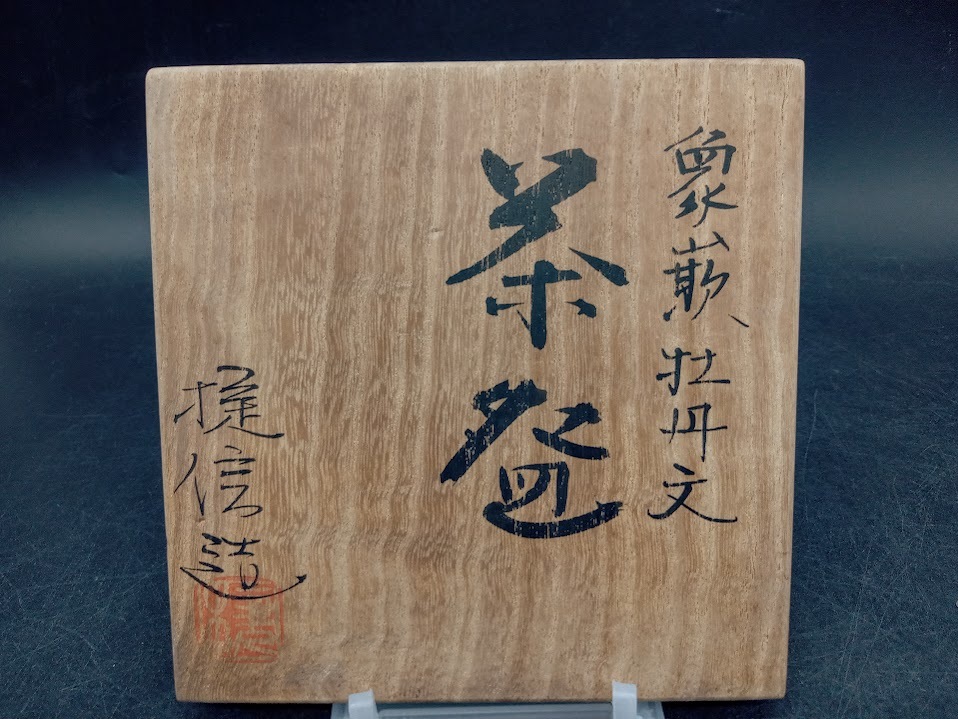 象嵌牡丹文
茶盌
捷信造